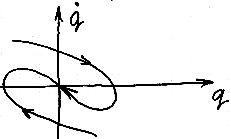 q̇
q